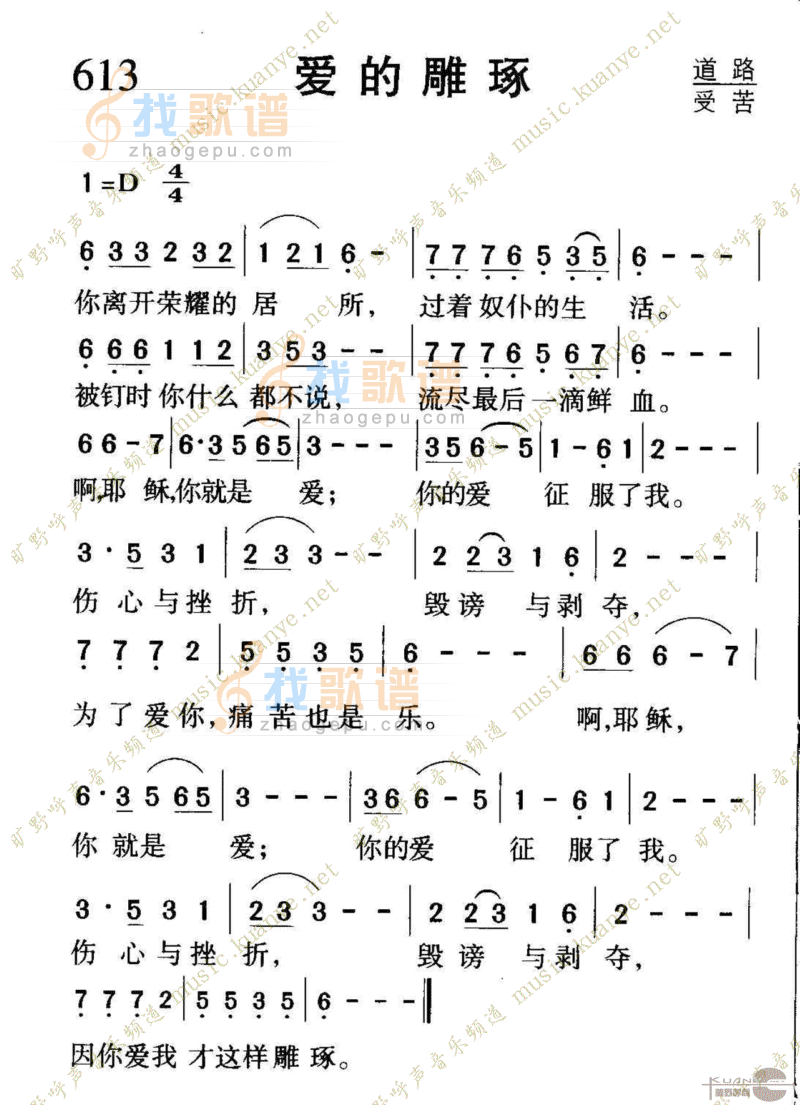 613
爱的雕琢
道路
受苦
找歌谱
zhaogepu.com
1=D 4/4
6 3 3 2 3 2 | 1 2 1 6 - | 7 7 7 6 5 3 5 | 6 - - - |
你离开荣耀的 居 所, 过着奴仆的生 活。
6 6 6 1 1 2 | 3 5 3 - - | 7 7 7 6 5 6 7 | 6 - - - |
被钉时你什么 都不说, 流尽最后一滴鲜 血。
找歌谱
zhaogepu.com
6 6 - 7 | 6 · 3 5 6 5 | 3 - - - | 3 5 6 - 5 | 1 - 6 1 | 2 - - - |
啊,耶 稣,你就是 爱; 你的爱 征 服了我。
3 · 5 3 1 | 2 3 3 - - | 2 2 3 1 6 | 2 - - - |
伤 心与挫 折, 毁谤 与剥 夺,
7 7 7 2 | 5 5 3 5 | 6 - - - | 6 6 6 - 7 |
为了爱你,痛苦也是 乐。 啊,耶稣,
找歌谱
zhaogepu.com
6 · 3 5 6 5 | 3 - - - | 3 6 6 - 5 | 1 - 6 1 | 2 - - - |
你 就是 爱; 你的爱 征 服了我。
3 · 5 3 1 | 2 3 3 - - | 2 2 3 1 6 | 2 - - - |
伤 心与挫 折, 毁谤 与剥 夺,
7 7 7 2 | 5 5 3 5 | 6 - - ‖
因你爱我 才这样雕 琢。
旷野呼声音乐频道 music.kuanye.net
KUAN